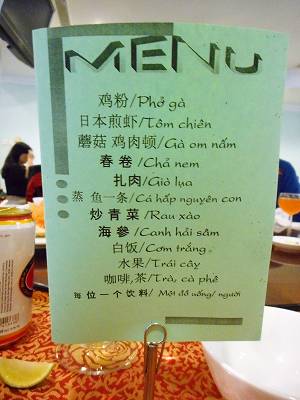 MENU
鸡粉/Phở gà
日本煎虾/Tôm chiên
蘑菇 鸡肉顿/Gà om nấm
春卷/Chả nem
扎肉/Giò lụa
蒸 鱼一条/Cá hấp nguyên con
炒青菜/Rau xào
海参/Canh hải sâm
白饭/Cơm trắng
水果/Trái cây
咖啡,茶/Trà, cà phê
每位一个饮料/ Một đồ uống/ người